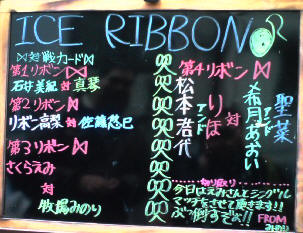 ICE RIBBON
対戦カード
第1リボン
石井美紀 対 真琴
第2リボン
リボン高琴 対 佐藤悠己
第3リボン
さくらえみ
対
牧場みのり
第4リボン
松本浩代
アンド
りほ
対
希月あおい
アンド
聖菜
切り取り
今日はえみさんとシングル
マッチをさせて頂きます!!
ぶっ倒すぞぉ!!
FROM
みのり